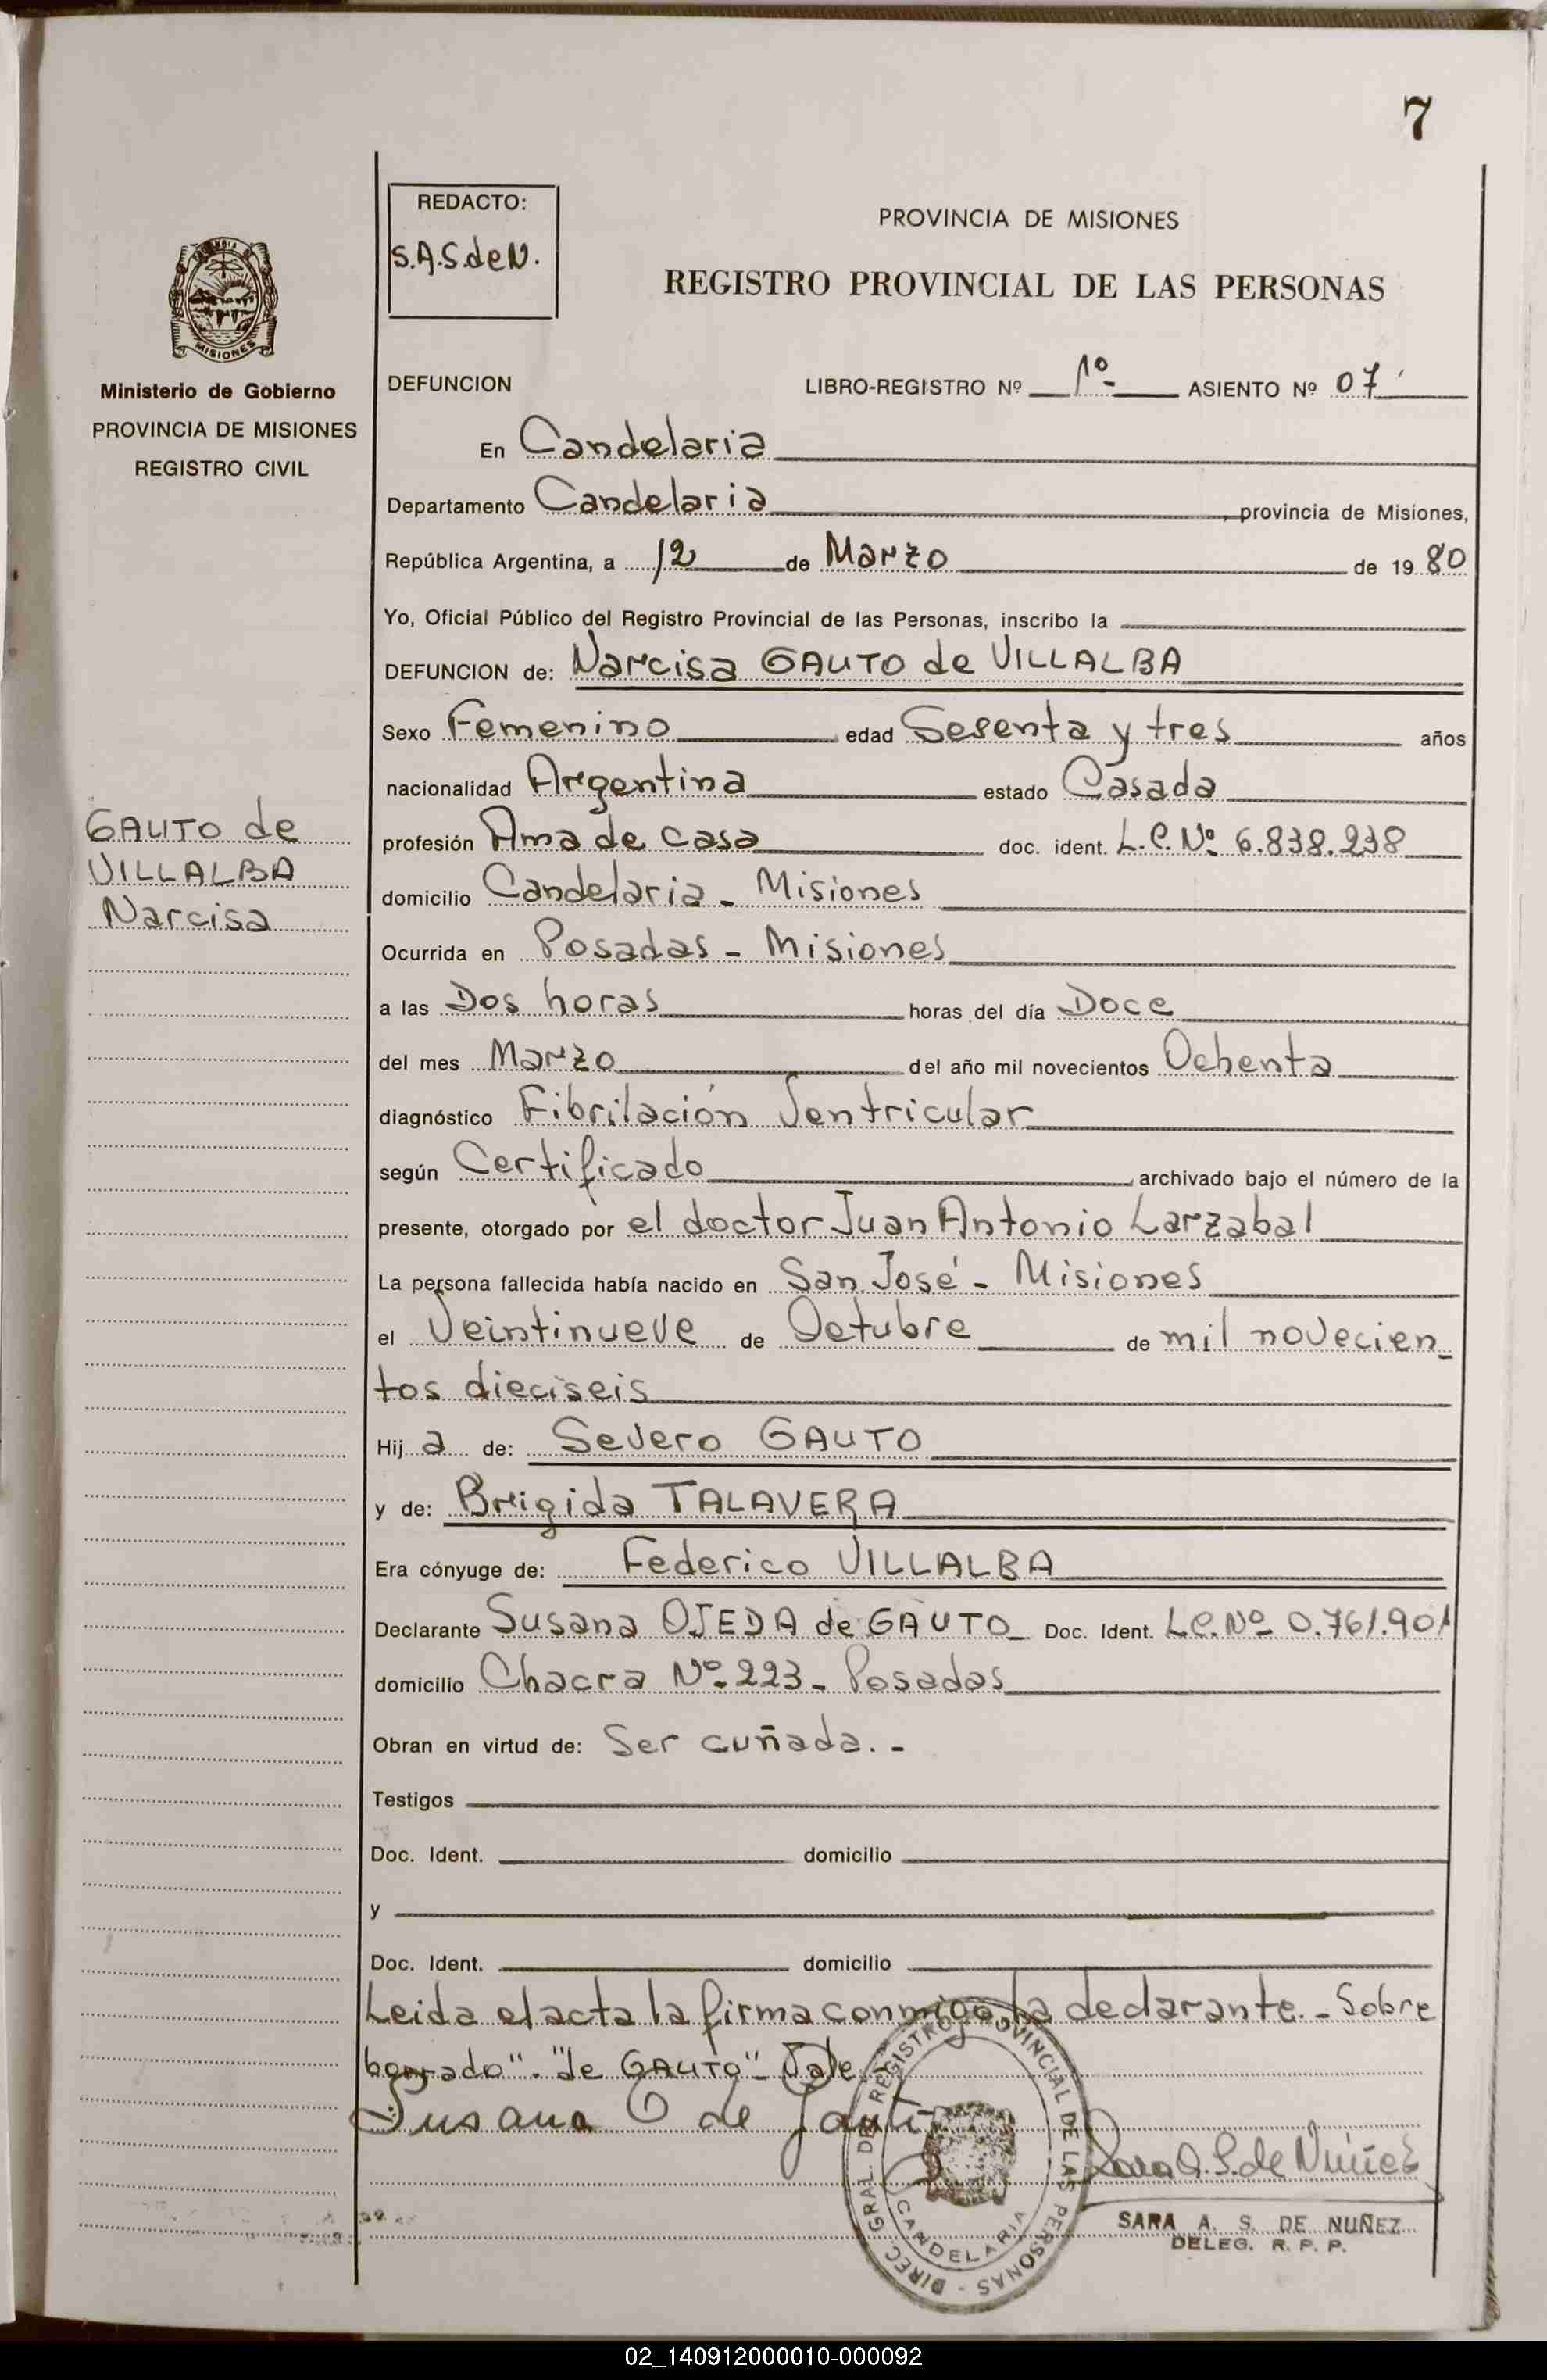 7
REDACTO:
S.A.S.de N.
PROVINCIA DE MISIONES
REGISTRO PROVINCIAL DE LAS PERSONAS
MISIONES
Ministerio de Gobierno
PROVINCIA DE MISIONES
REGISTRO CIVIL
DEFUNCION LIBRO-REGISTRO Nº 1º- ASIENTO Nº 07
En Candelaria
Departamento Candelaria, provincia de Misiones,
República Argentina, a 12 de Marzo de 1980
Yo, Oficial Público del Registro Provincial de las Personas, inscribo la
DEFUNCION de: Narcisa GAUTO de VILLALBA
Sexo Femenino edad Sesenta y tres años
nacionalidad Argentina estado Casada
profesión Ama de casa doc. ident. L.C. Nº 6.838.238
domicilio Candelaria - Misiones
GAUTO de
VILLALBA
Narcisa
Ocurrida en Posadas - Misiones
a las Dos horas horas del día Doce
del mes Marzo del año mil novecientos Ochenta
diagnóstico Fibrilación Ventricular
según Certificado, archivado bajo el número de la
presente, otorgado por el doctor Juan Antonio Larzabal
La persona fallecida había nacido en San José - Misiones
el Veintinueve de Octubre de mil novecien-
tos dieciseis
Hij a de: Severo GAUTO
y de: Brigida TALAVERA
Era cónyuge de: Federico VILLALBA
Declarante Susana OJEDA de GAUTO - Doc. Ident. L.C. Nº 0.761.901
domicilio Chacra Nº 223 - Posadas
Obran en virtud de: Ser cuñada.-
Testigos
Doc. Ident. domicilio
y
Doc. Ident. domicilio
Leida el acta la firma conmigo la declarante.- Sobre
borrado". "de GAUTO"- Vale
Susana O de Gauto
DIREC. GRAL. DEL REGISTRO PROVINCIAL DE LAS PERSONAS -
CANDELARIA
Sara A. S. de Núñez
SARA A. S. DE NUÑEZ
DELEG. R. P. P.
02_140912000010-000092